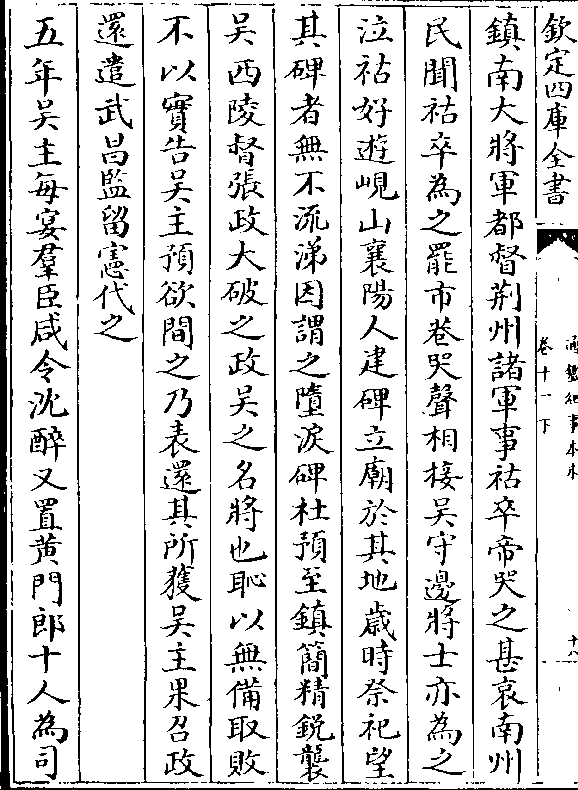 欽定四庫全書
通鑑紀事本末
卷十一下
十八
鎮南大將軍都督荆州諸軍事祜卒帝哭之甚哀南州
民聞祜卒為之罷市巷哭聲相接吳守邊將士亦為之
泣祜好遊峴山襄陽人建碑立廟於其地歲時祭祀望
其碑者無不流涕因謂之墮淚碑杜預至鎮簡精銳襲
吳西陵督張政大破之政吳之名將也恥以無備取敗
不以實告吳主預欲間之乃表還其所獲吳主果召政
還遣武昌監留憲代之
五年吳主每宴羣臣咸令沈醉又置黄門郎十人為司